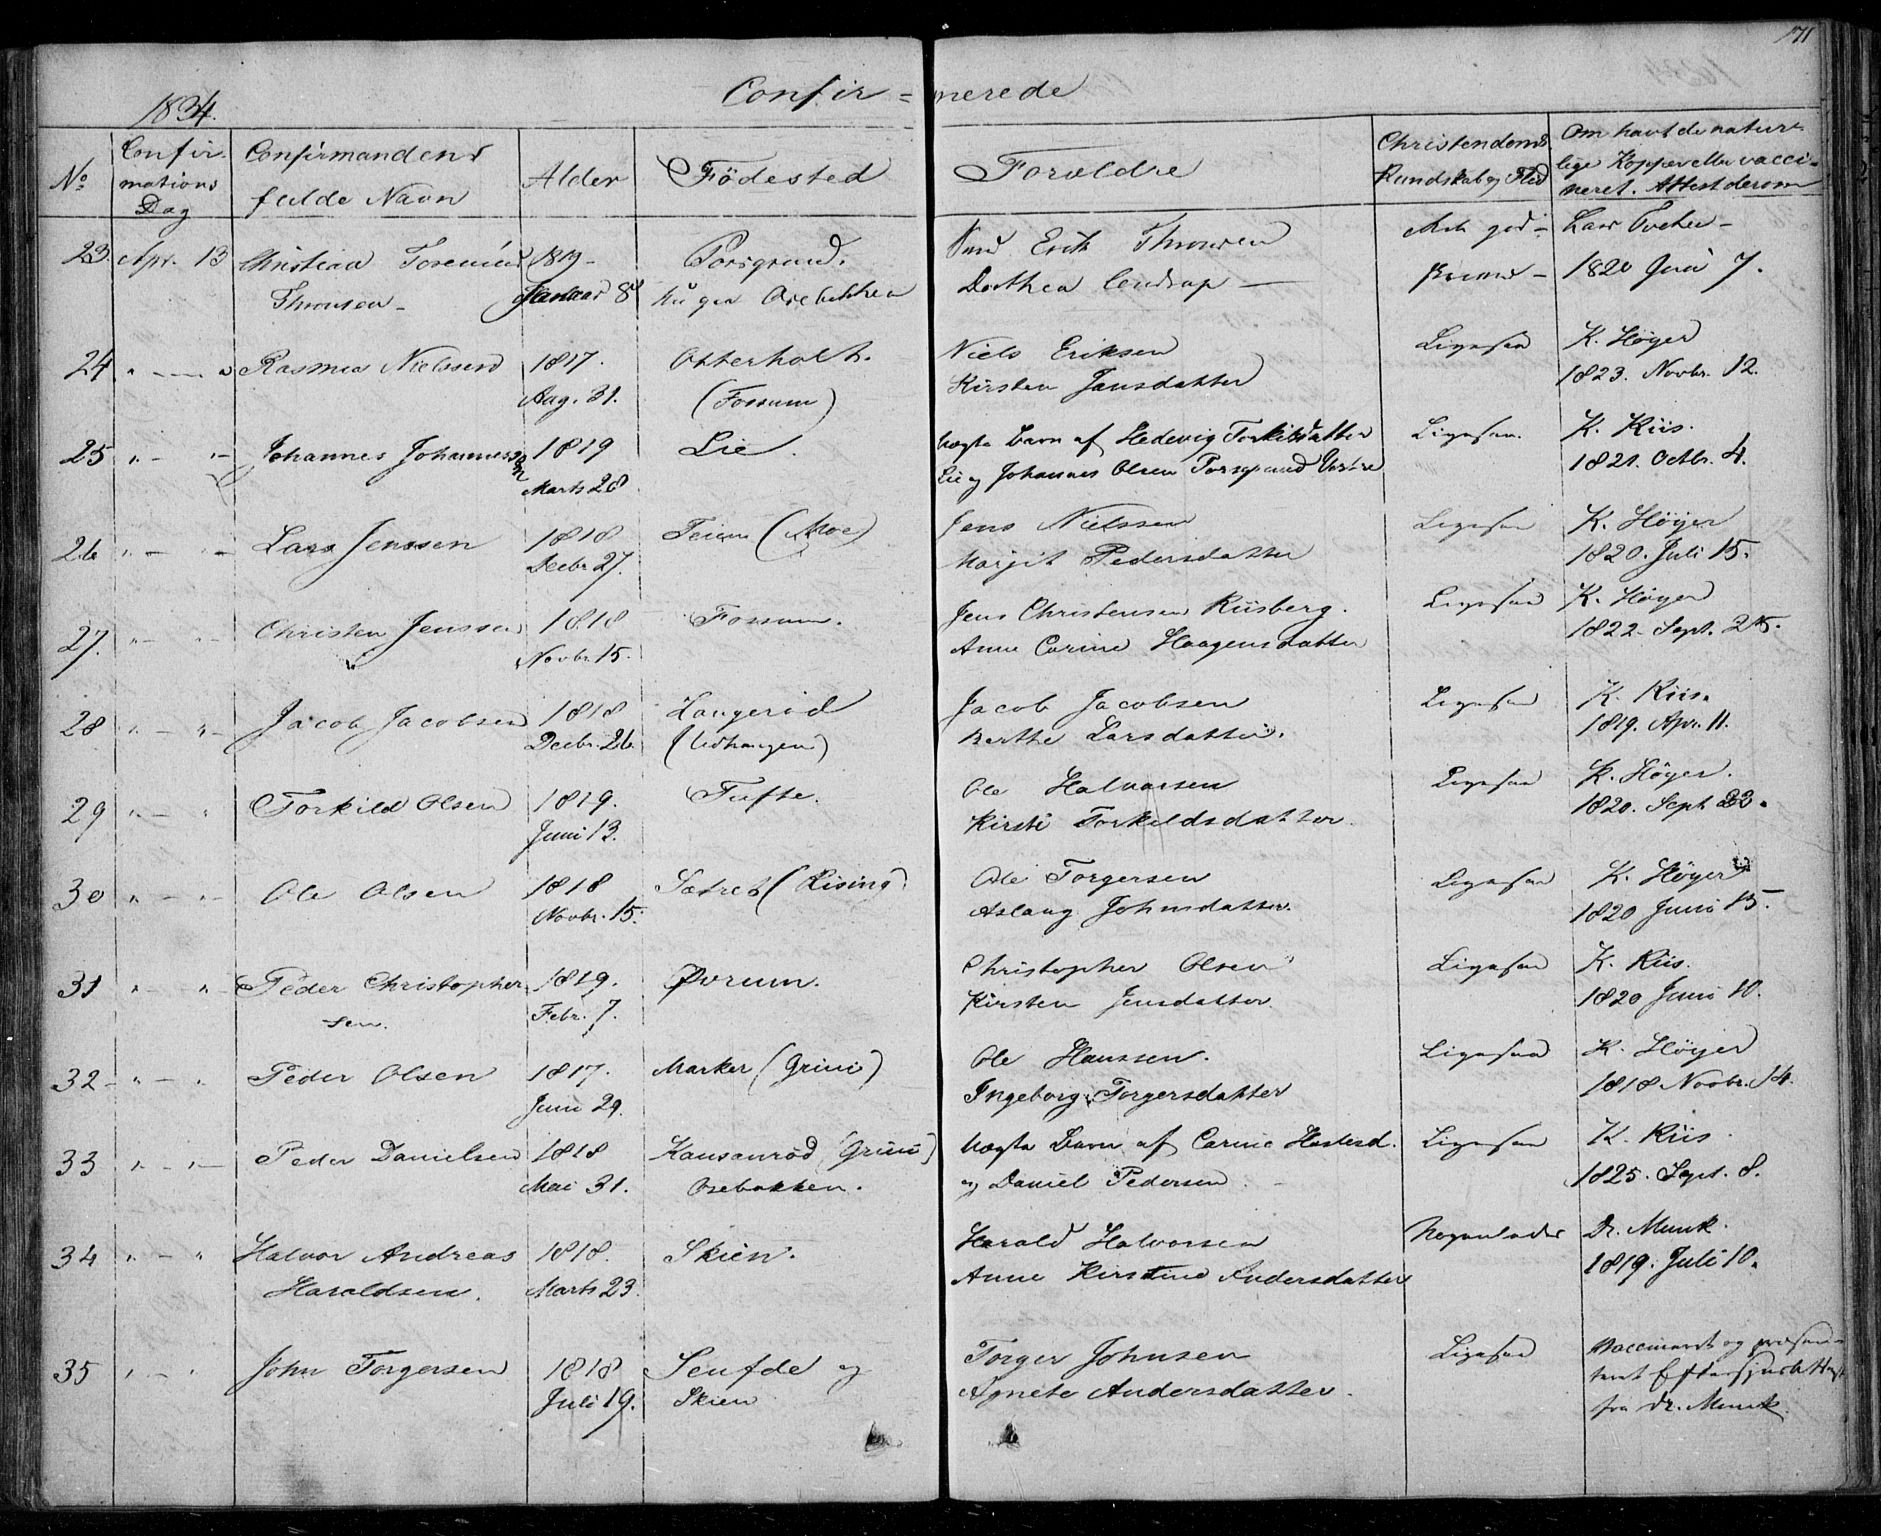 171
1834.
Confir = merede
No
Confirmations Dag
Confirmandens fulde Navn
Alder
Födested
Forældre
Christendoms Kundskab og Flid
Om havt de naturlige Kopper eller vaccineret. Attest derom
23 Apr. 13 Christian 1819 Porsgrund. Erik Thronsen god Lars
Thronsen Januar 8 Dorthea 1820 Juni 7.
24 " — " Rasmus Nielssen 1817. Otterholt. Niels Eriksen Ligesaa K. Höyer
Aug. 31. (Fossum) Kirsten Jansdatter 1823. Novbr. 12.
25 " — " Johannes Johannessen 1819 Lie. Uægte Barn af Hedevig Torkilsdatter Ligesaa. K. Riis.
Marts 28 Lie og Johannes Olsen Porsgrund 1821. Octbr. 4.
26 " — " Lars Jenssen 1818 (Moe) Jens Nielssen Ligesaa K. Höyer
Decbr 27. Margit Pedersdatter 1820. Juli 15.
27. " — " Christen Jenssen 1818 Fossum. Jens Christensen Riisberg. Ligesaa K. Höyer
Novbr 15. Anne Carine Haagensdatter 1822. Sept. 25.
28 " — " Jacob Jacobsen 1818 Langeröd Jacob Jacobsen Ligesaa K. Riis.
Decbr. 26 Berthe Larsdatter. 1819. Apr. 11.
29 " — " Torkild Olsen 1819. Tufte. Ole Halvorsen Ligesaa K. Höyer.
Juni 13. Kirsti Torkildsdatter. 1820. Sept 23.
30 " — " Ole Olsen 1818 Sætret (Rising) Ole Torgersen Ligesaa K. Höyer
Novbr. 15. Aslaug Johnsdatter. 1820 Juni 15.
31 " — " Peder Christopher 1819. Övrum. Christopher Olsen Ligesaa K. Riis.
-sen. Febr. 7. Kirsten Jensdatter. 1820 Juni 10.
32 " — " Peder Olsen 1817. Marker (Grini) Ole Hanssen. Ligesaa K. Höyer
Juni 29. Ingeborg Torgersdatter 1818 Novbr. 14.
33 " — " Peder Danielsen 1818 (Grini) Uægte Barn af Carine Ligesaa K. Riis.
Mai 31. Osebakken. og Daniel Pedersen 1825. Sept. 8.
34 " — " Halvor Andreas 1818. Skien. Harald Halvorsen Dr. Munk.
Haraldsen. Marts 23. Anne Kirstine Andersdatter 1819. Juli 10.
35 " — " John Torgersen 1818 og Torger Johnsen Ligesaa Vaccineret og
Juli 19. Skien Agnete Andersdatter. fra Dr. Munk.